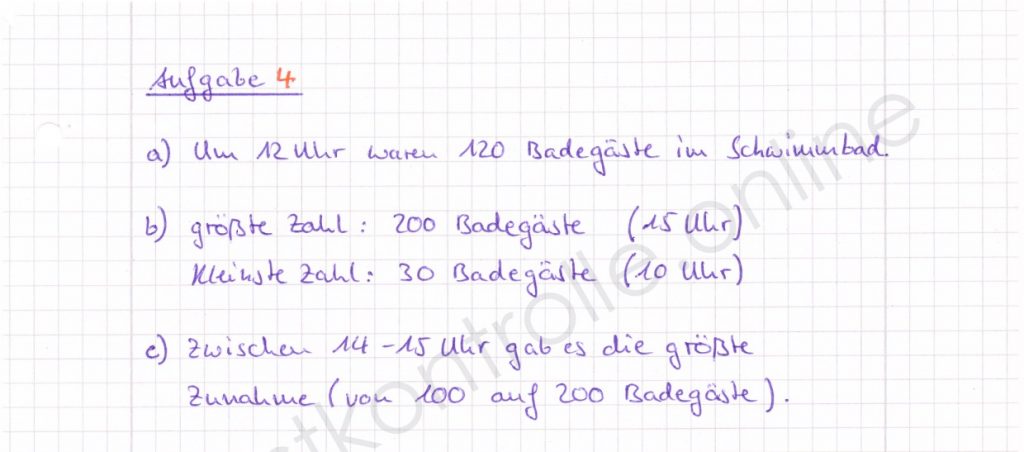 Aufgabe 4
a) Um 12 Uhr waren 120 Badegäste im Schwimmbad.
b) größte Zahl: 200 Badegäste (15 Uhr)
Kleinste Zahl: 30 Badegäste (10 Uhr)
c) Zwischen 14 - 15 Uhr gab es die größte
Zunahme (von 100 auf 200 Badegäste).
stkontrolle.online